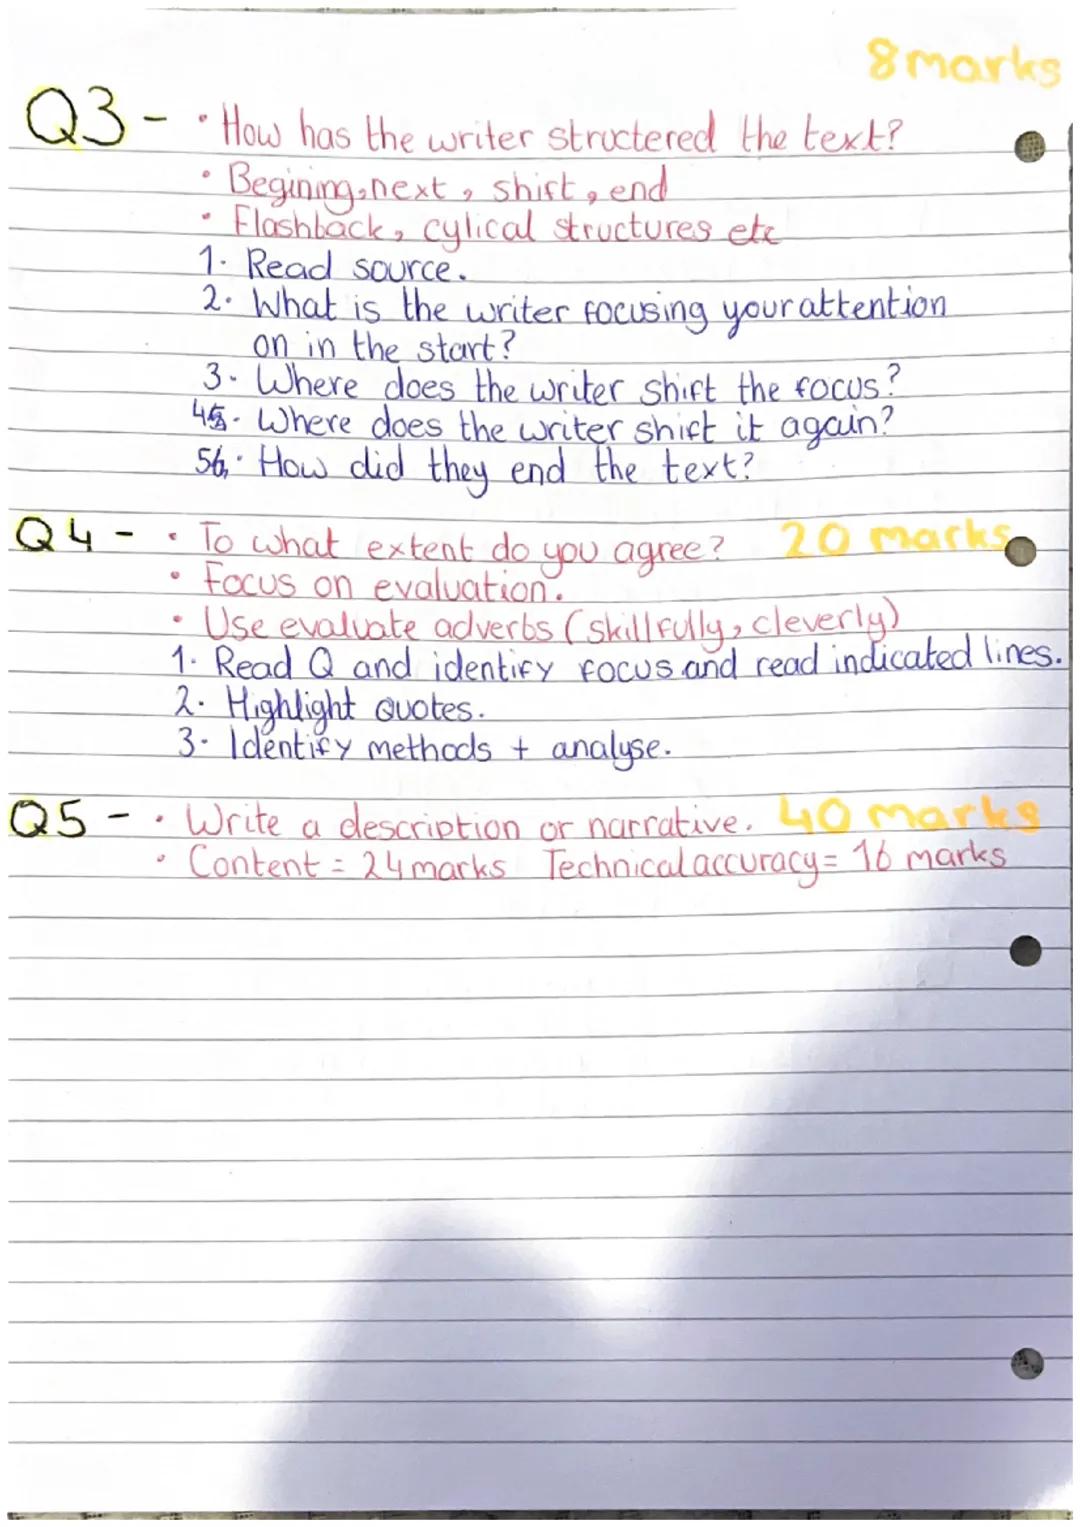 8 marks
Q3 - • How has the writer structered the text?
• Begining, next, shift, end
• Flashback, cylical structures etc
1. Read source.
2. What is the writer focusing your attention
on in the start?
3. Where does the writer shift the focus?
4. Where does the writer shift it again?
5. How did they end the text?
Q4 - • To what extent do you agree? 20 marks
• Focus on evaluation.
• Use evaluate adverbs (skillfully, cleverly)
1. Read Q and identify focus and read indicated lines.
2. Highlight Quotes.
3. Identify methods + analyse.
Q5 - • Write a description or narrative. 40 marks
• Content = 24 marks Technical accuracy = 16 marks